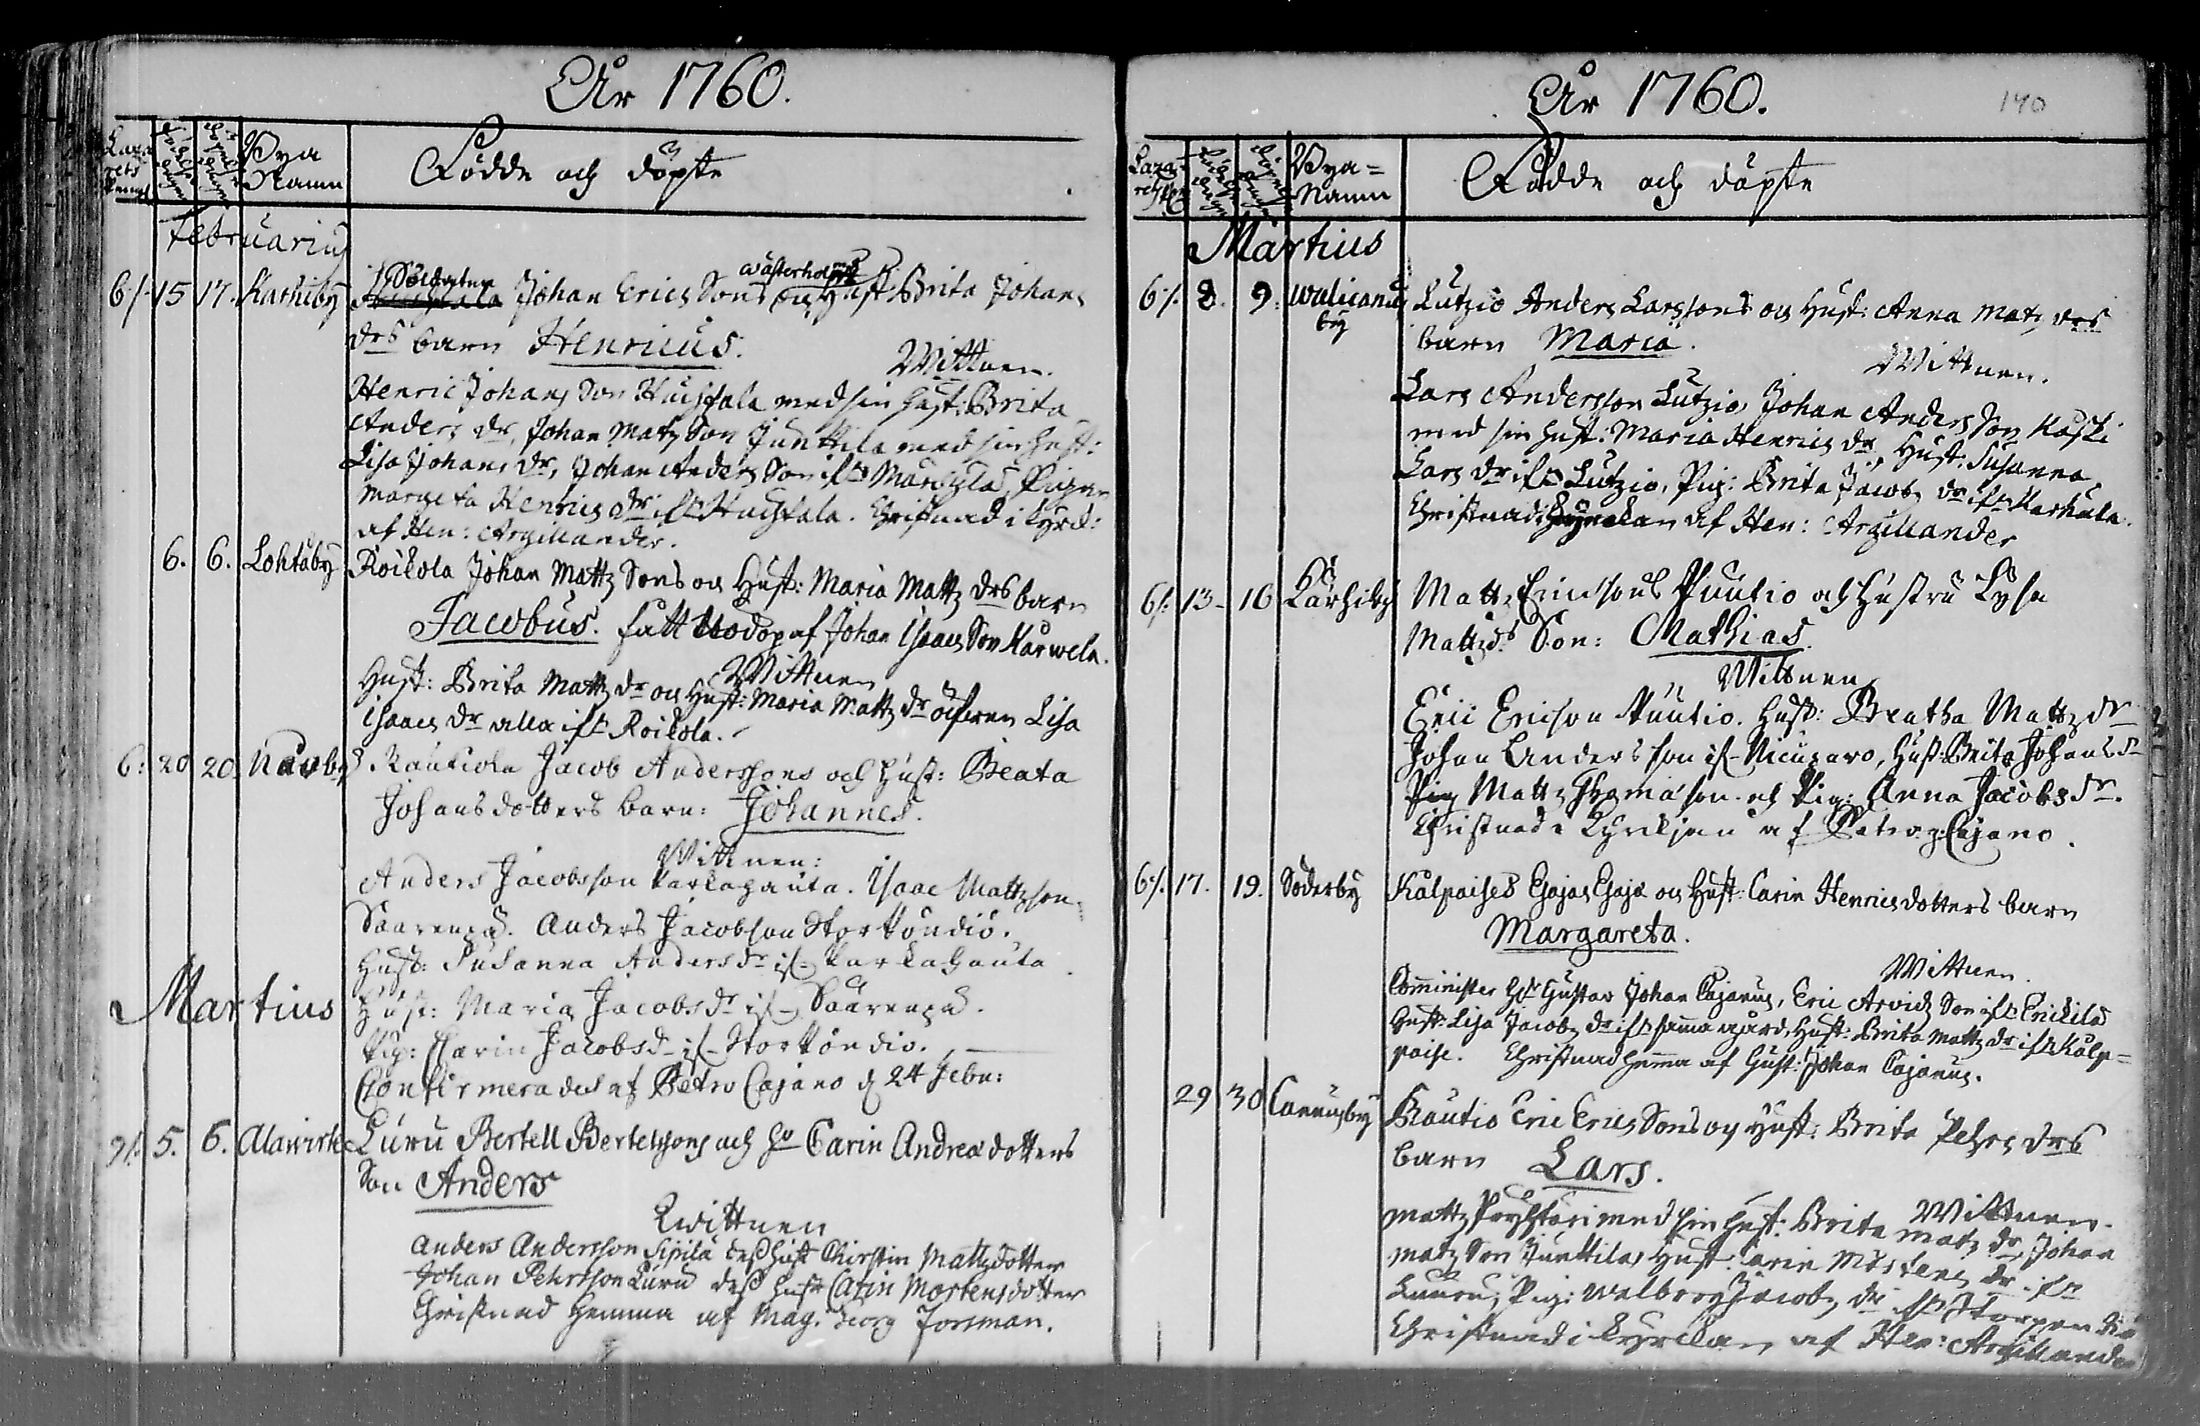 År 1760.
Laza
rets
Byja
Namn
Födde och döpte
Februarius
Soldaten wästerholms
6/. 15 17. Karhiby Johan Erics Sons och Hust Brita Johans
drs barn Henricus.
Wittnen.
Henric Johans Son Huchtala med sin Hust: Brita
Anders dr, Johan Matz Son Junttila med sin Hust:
Lisa Johans dr, Johan Anders Son ifr Markula, Pigan
Margeta Henrics dr ifr Huchtala. Christnad i kyrk:
af Hen: Argillander.
6. 6. Lohtåby Roikola Johan Mattz Sons och Hust: Maria Mattz drs barn
Jacobus. fått Nödop af Johan Isaacs Son Karwela.
Wittnen
Hust: Brita Mattz dr och Hust: Maria Mattz dr Lisa
Isaacs dr alla ifr Roikola.
6: 20 20 Rautiola Jacob Anderssons och Hust: Beata
Johansdotters barn: Johannes.
Wittnen:
Anders Jacobsson Karkahauta. Isaac Mattzson
Saarenpä. Anders Jacobson Storköndiö.
Hust: Susanna Andersdr ifr Karkahauta
Martius
Hust: Maria Jacobsdr ifr Saarenpä.
Pig: Carin Jacobsd ifr Storköndiö.
Confirmerades af Petro Cajano d 24 Febr:
9/. 5. 6. Alawirte Luru Bertell Bertelssons och hu Carin Andreædotters
Son Anders
Wittnen
Anders Andersson Sipilä dess hust Chirstin Mattzdotter
Johan Pehrsson Luru dess hust Carin Mortensdotter
Christnad hemma af Mag. Georg Forsman.
År 1760.
140
Laza
Byja=
Namn
Födde och döpte
Martius
6/. 8. 9. Walicanus
by
Lutzio Anders Larssons och Hust: Anna Matz drs
barn Maria.
Wittnen.
Lars Andersson Lutzio, Johan Anders Son Kaski
med sin Hust: Maria Henrics dr, Hust: Susanna
Lars dr ifr Lutzio, Pig: Brita Jacobs dr ifr Karhula.
Christnad i kyrckan af Hen: Argillander
6/. 13- 16 Karhiby Matts Ericsons Puutio och Hustru Lysa
Mattsds Son: Mathias.
Wittnen
Eric Ericson Puutio. Hust: Beatha Mattzdr
Johan Andersson ifr Nicusaro, Hust: Brita Johansdr
Mattz Thomason och Pig: Anna Jacobsdr.
Christnad i Kyrckjan af Petro Cajano.
6/. 17. 19. Söderby Kålpaises Esajas Esajæ och Hust: Carin Henricsdotters barn
Margareta.
Wittnen.
Comminister Hr Gustav Johan Cajanus, Eric Arvids Son ifr Erickilä
Hust: Lisa Jacobs dr ifr samma gård, Hust: Brita Mattz dr ifr Kålp=
paise. Christnad hemma af Gust: Johan Cajanus.
29 30 Cannusby Rautio Eric Erics Sons och Hust: Brita Pehrs drs
barn Lars.
Wittnen.
Mattz med sin Hust: Brita Matz dr, Johan
Matz Son Junttila, Hust: Carin Mårtens dr ifr
Luuru, Pig: Walborg Jacobs dr ifr
Christnad i kyrckan af Hen: Argillander